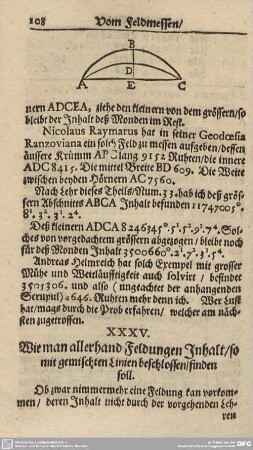 108
Vom Feldmessen/
B
D
A
E
C
nern ADCEA, ziehe den kleinern von dem grössern/so
bleibt der Inhalt deß Monden im Rest.
Nicolaus Raymarus hat in seiner Geodœsia
Ranzoviana ein solch Feld zu messen aufgeben/dessen
äussere Krümm APC lang 9152 Ruhten/die innere
ADC 8415. Die mittel Breite BD 609. Die Weite
zwischen beyden Hörnern AC 7560.
Nach Lehr dieses Theils/Num. 33. hab ich deß grös-
sern Abschnittes ABCA Inhalt befunden 11747005°.
8¹. 3². 3³. 2⁴.
Deß kleinern ADCA 8246345°.5¹.5².9³.7⁴. Sol-
ches von vorgedachtem grössern abgezogen/bleibt noch
für deß Monden Inhalt 3500660°.2¹.7².3³.5⁴.
Andreas Helmreich hat solch Exempel mit grosser
Mühe und Weitläufftigkeit auch solvirt/befindet
3505306. und also (ungeachtet der anhangenden
Scrupul) 4646. Ruhten mehr denn ich. Wer Lust
hat/mags durch die Prob erfahren/welcher am näch-
sten zugetroffen.
XXXV.
Wie man allerhand Feldungen Inhalt/so
mit gemischten Linien beschlossen/finden
soll.
Ob zwar nimmermehr eine Feldung kan vorkom-
men/deren Inhalt nicht durch der vorgehenden Leh-
ren
DFG